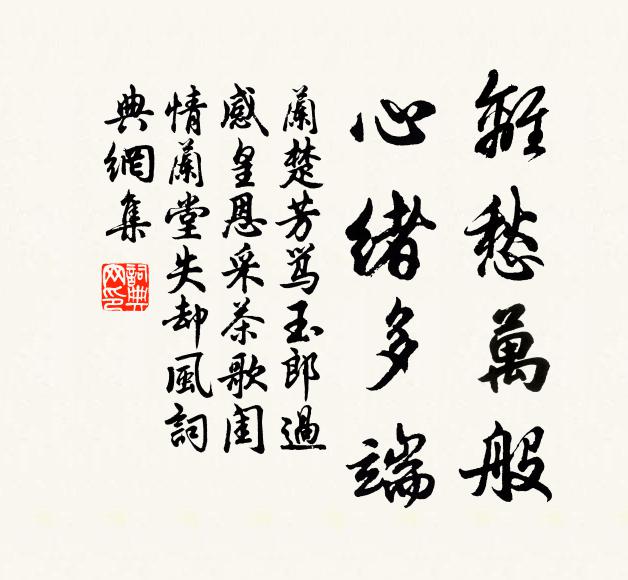 離愁萬般
心緒多端
蘭楚芳罵玉郎過
感皇恩采茶歌閨
情蘭堂失却風詞
典網集
詞典网印